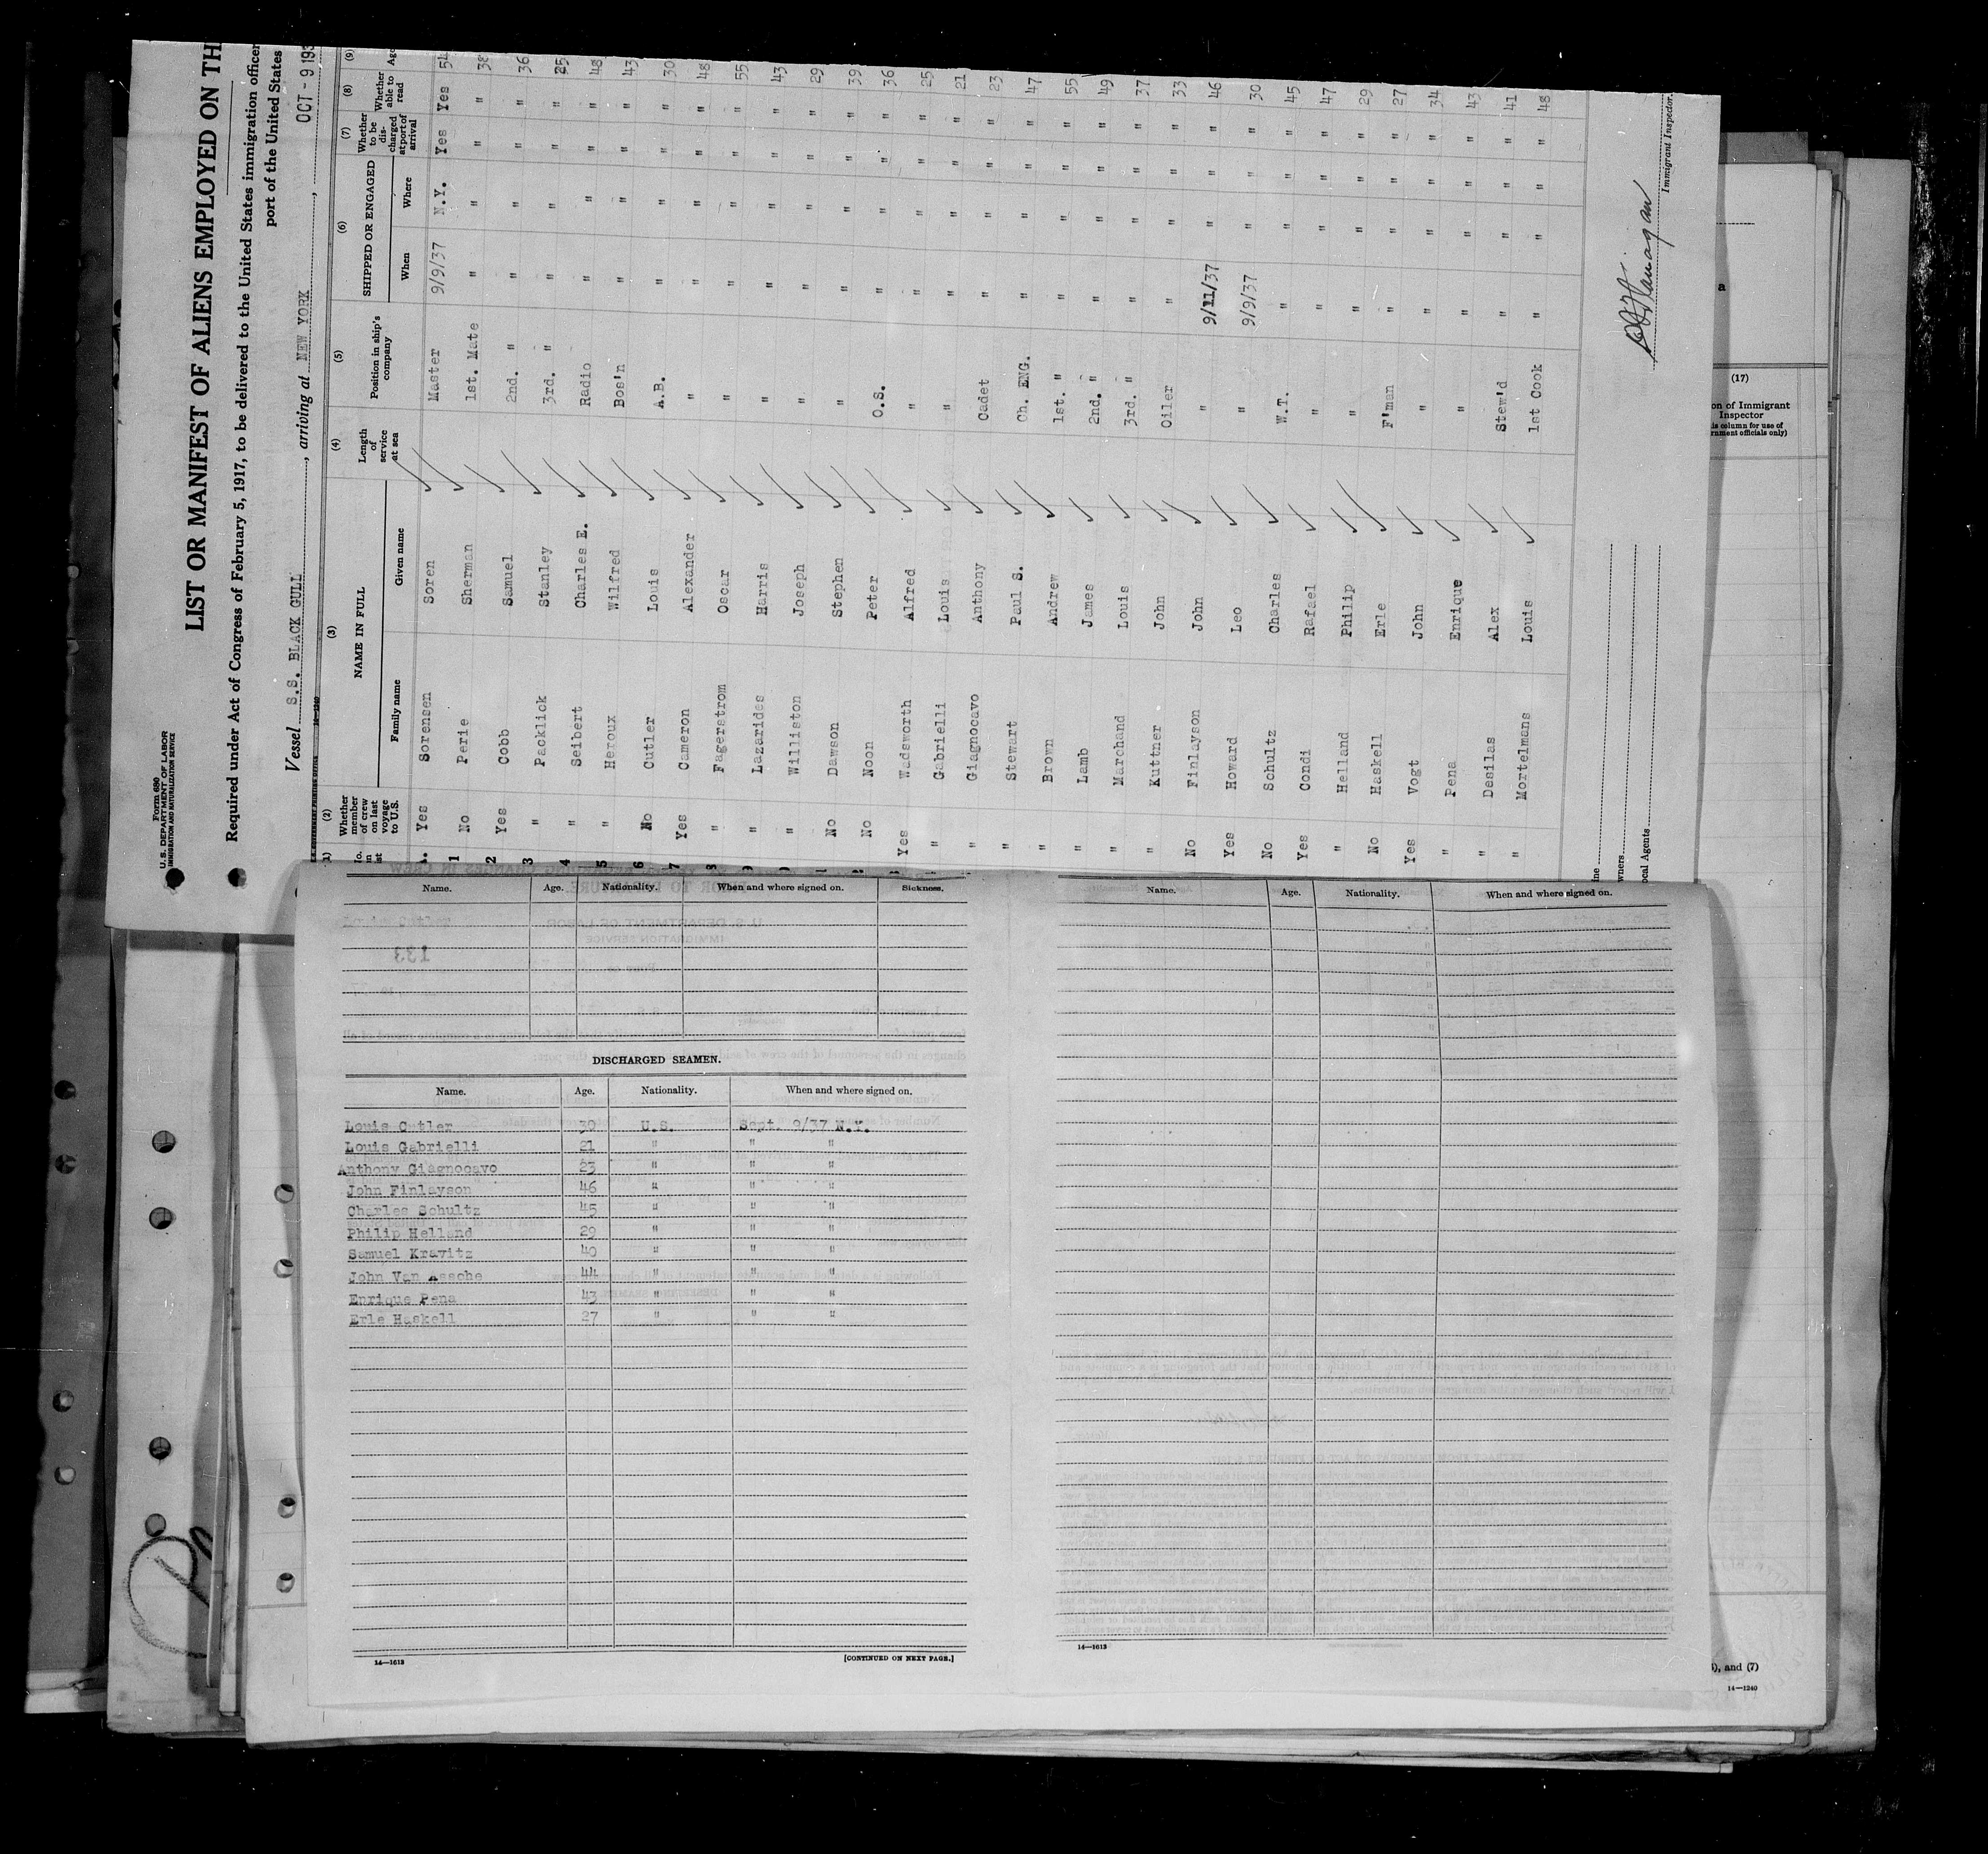 Form 690
U. S. DEPARTMENT OF LABOR
IMMIGRATION AND NATURALIZATION SERVICE
LIST OR MANIFEST OF ALIENS EMPLOYED ON TH
Required under Act of Congress of February 5, 1917, to be delivered to the United States immigration officer
port of the United States
Vessel S.S. BLACK GULL, arriving at NEW YORK, OCT - 9 193
(2) (3) (4) (5) (6) (7) (8) (9)
Whether member of crew on last voyage to U.S. NAME IN FULL Family name Given name Length of service at sea Position in ship's company SHIPPED OR ENGAGED When Where Whether to be discharged at port of arrival Whether able to read Age
Yes Sorensen Soren Master 9/9/37 N.Y. Yes Yes 54
1 No Perie Sherman 1st. Mate " " " " 38
2 Yes Cobb Samuel 2nd. " " " " " 36
3 " Packlick Stanley 3rd. " " " " " 25
4 " Seibert Charles E. Radio " " " " 48
5 " Heroux Wilfred Bos'n " " " " 43
6 No Cutler Louis A.B. " " " " 30
7 Yes Cameron Alexander " " " " " 48
8 " Fagerstrom Oscar " " " " " 55
" Lazarides Harris " " " " " 43
" Williston Joseph " " " " " 29
No Dawson Stephen " " " " " 39
No Noon Peter O.S. " " " " 36
Yes Wadsworth Alfred " " " " " 25
" Gabrielli Louis " " " " " 21
" Giagnocavo Anthony Cadet " " " " 23
" Stewart Paul S. Ch. ENG. " " " " 47
" Brown Andrew 1st. " " " " " 55
" Lamb James 2nd. " " " " " 49
" Marchand Louis 3rd. " " " " " 37
" Kuttner John Oiler " " " " 33
No Finlayson John " 9/21/37 " " " 46
Yes Howard Leo " 9/9/37 " " " 30
No Schultz Charles W.T. " " " " 45
Yes Condi Rafael " " " " " 47
" Helland Philip " " " " " 29
No Haskell Erle F'man " " " " 27
Yes Vogt John " " " " " 34
" Pena Enrique " " " " " 43
" Desilas Alex Stew'd " " " " 41
" Mortelmans Louis 1st Cook " " " " 48
Immigrant Inspector.
wners
ocal Agents
(17)
on of Immigrant
Inspector
is column for use of
rnment officials only)
Name. Age. Nationality. When and where signed on. Sickness.
DISCHARGED SEAMEN.
Name. Age. Nationality. When and where signed on.
Louis Cutler 30 U.S. Sept. 9/37 N.Y.
Louis Gabrielli 21 " " "
Anthony Giagnocavo 23 " " "
John Finlayson 46 " " "
Charles Schultz 45 " " "
Philip Helland 29 " " "
Samuel Kravitz 40 " " "
John Van Assche 44 " " "
Enrique Pena 43 " " "
Erle Haskell 27 " " "
14—1613 [CONTINUED ON NEXT PAGE.]
Name. Age. Nationality. When and where signed on.
14—1613
, and (7)
14—1240